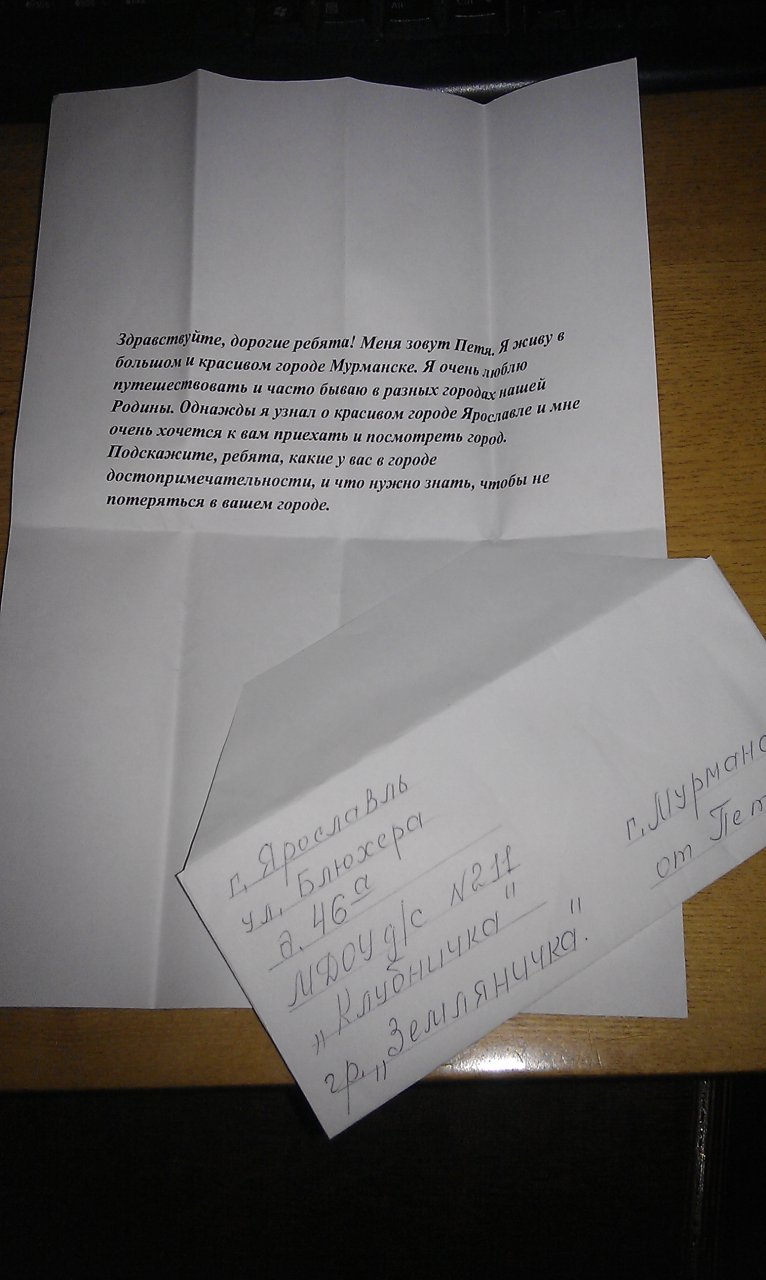 Здравствуйте, дорогие ребята! Меня зовут Петя. Я живу в
большом и красивом городе Мурманске. Я очень люблю
путешествовать и часто бываю в разных городах нашей
Родины. Однажды я узнал о красивом городе Ярославле и мне
очень хочется к вам приехать и посмотреть город.
Подскажите, ребята, какие у вас в городе
достопримечательности, и что нужно знать, чтобы не
потеряться в вашем городе.
г. Ярославль
ул. Блюхера
д. 46а
МДОУ д/с N211
„Клубничка"
гр. „Земляничка".
г. Мурманс
от Пет